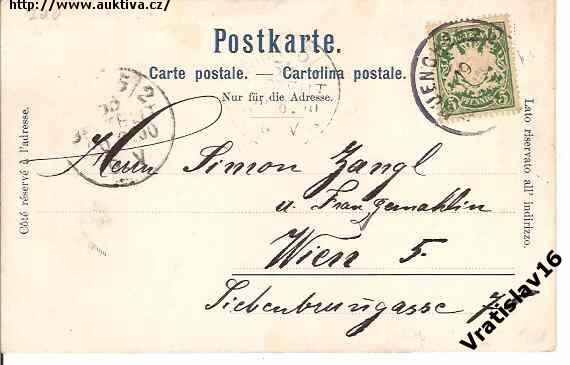 http://www.auktiva.cz/
Postkarte.
Carte postale. — Cartolina postale.
Nur für die Adresse.
Côté réservé à l'adresse.
Lato riservato all' indirizzo.
5 PFENNIG 5
Herrn Simon Zangl
u. Frau Gemahlin
Wien 5.
Siebenbrunngasse 7.
Vratislav16